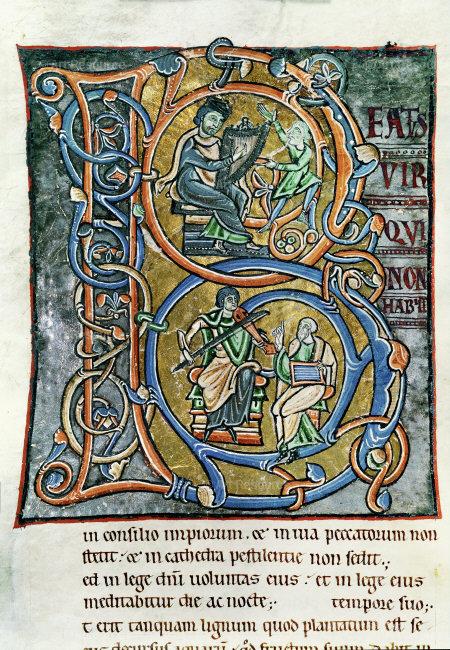 B
EATS
VIR
QVI
NON
HABIIT
in consilio impiorum. & in uia peccatorum non
stetit: & in cathedra pestilentie non sedit.,
ed in lege dñi uoluntas eius: et in lege eius
meditabitur die ac nocte;. tempore suo;.
t erit tanquam lignum quod plantatum est se
decursus fructum suum dabit in